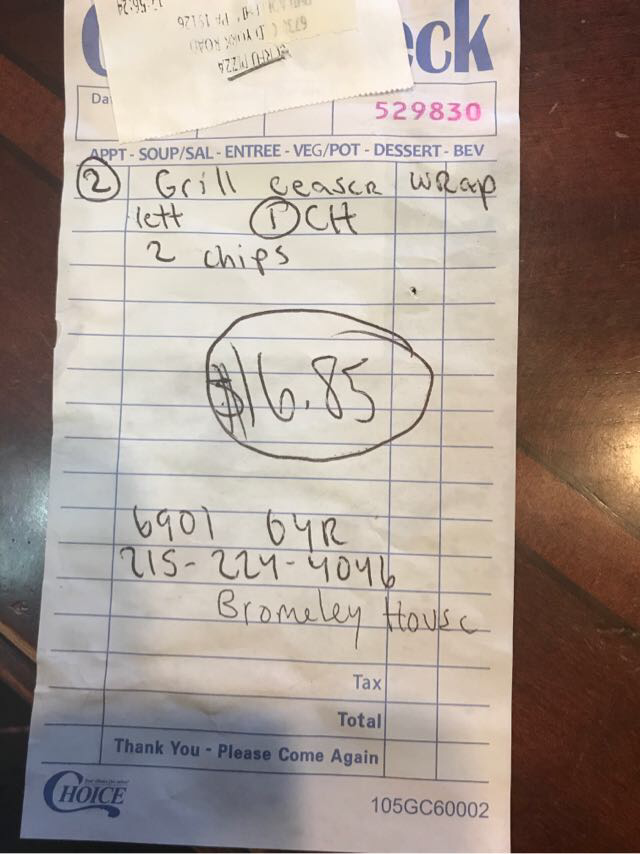 eck
Da
529830
APPT - SOUP/SAL - ENTREE - VEG/POT - DESSERT - BEV
2 Grill ceaser wrap
lett 1 CH
2 chips
$16.85
6901 OYR
215-224-4046
Bromeley House
Tax
Total
Thank You - Please Come Again
CHOICE
105GC60002
PIZZA
YORK ROAD
PA 19126
:56:24